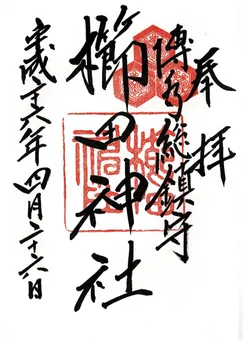 奉拝
博多総鎮守
櫛田神社
平成二十六年四月二十六日